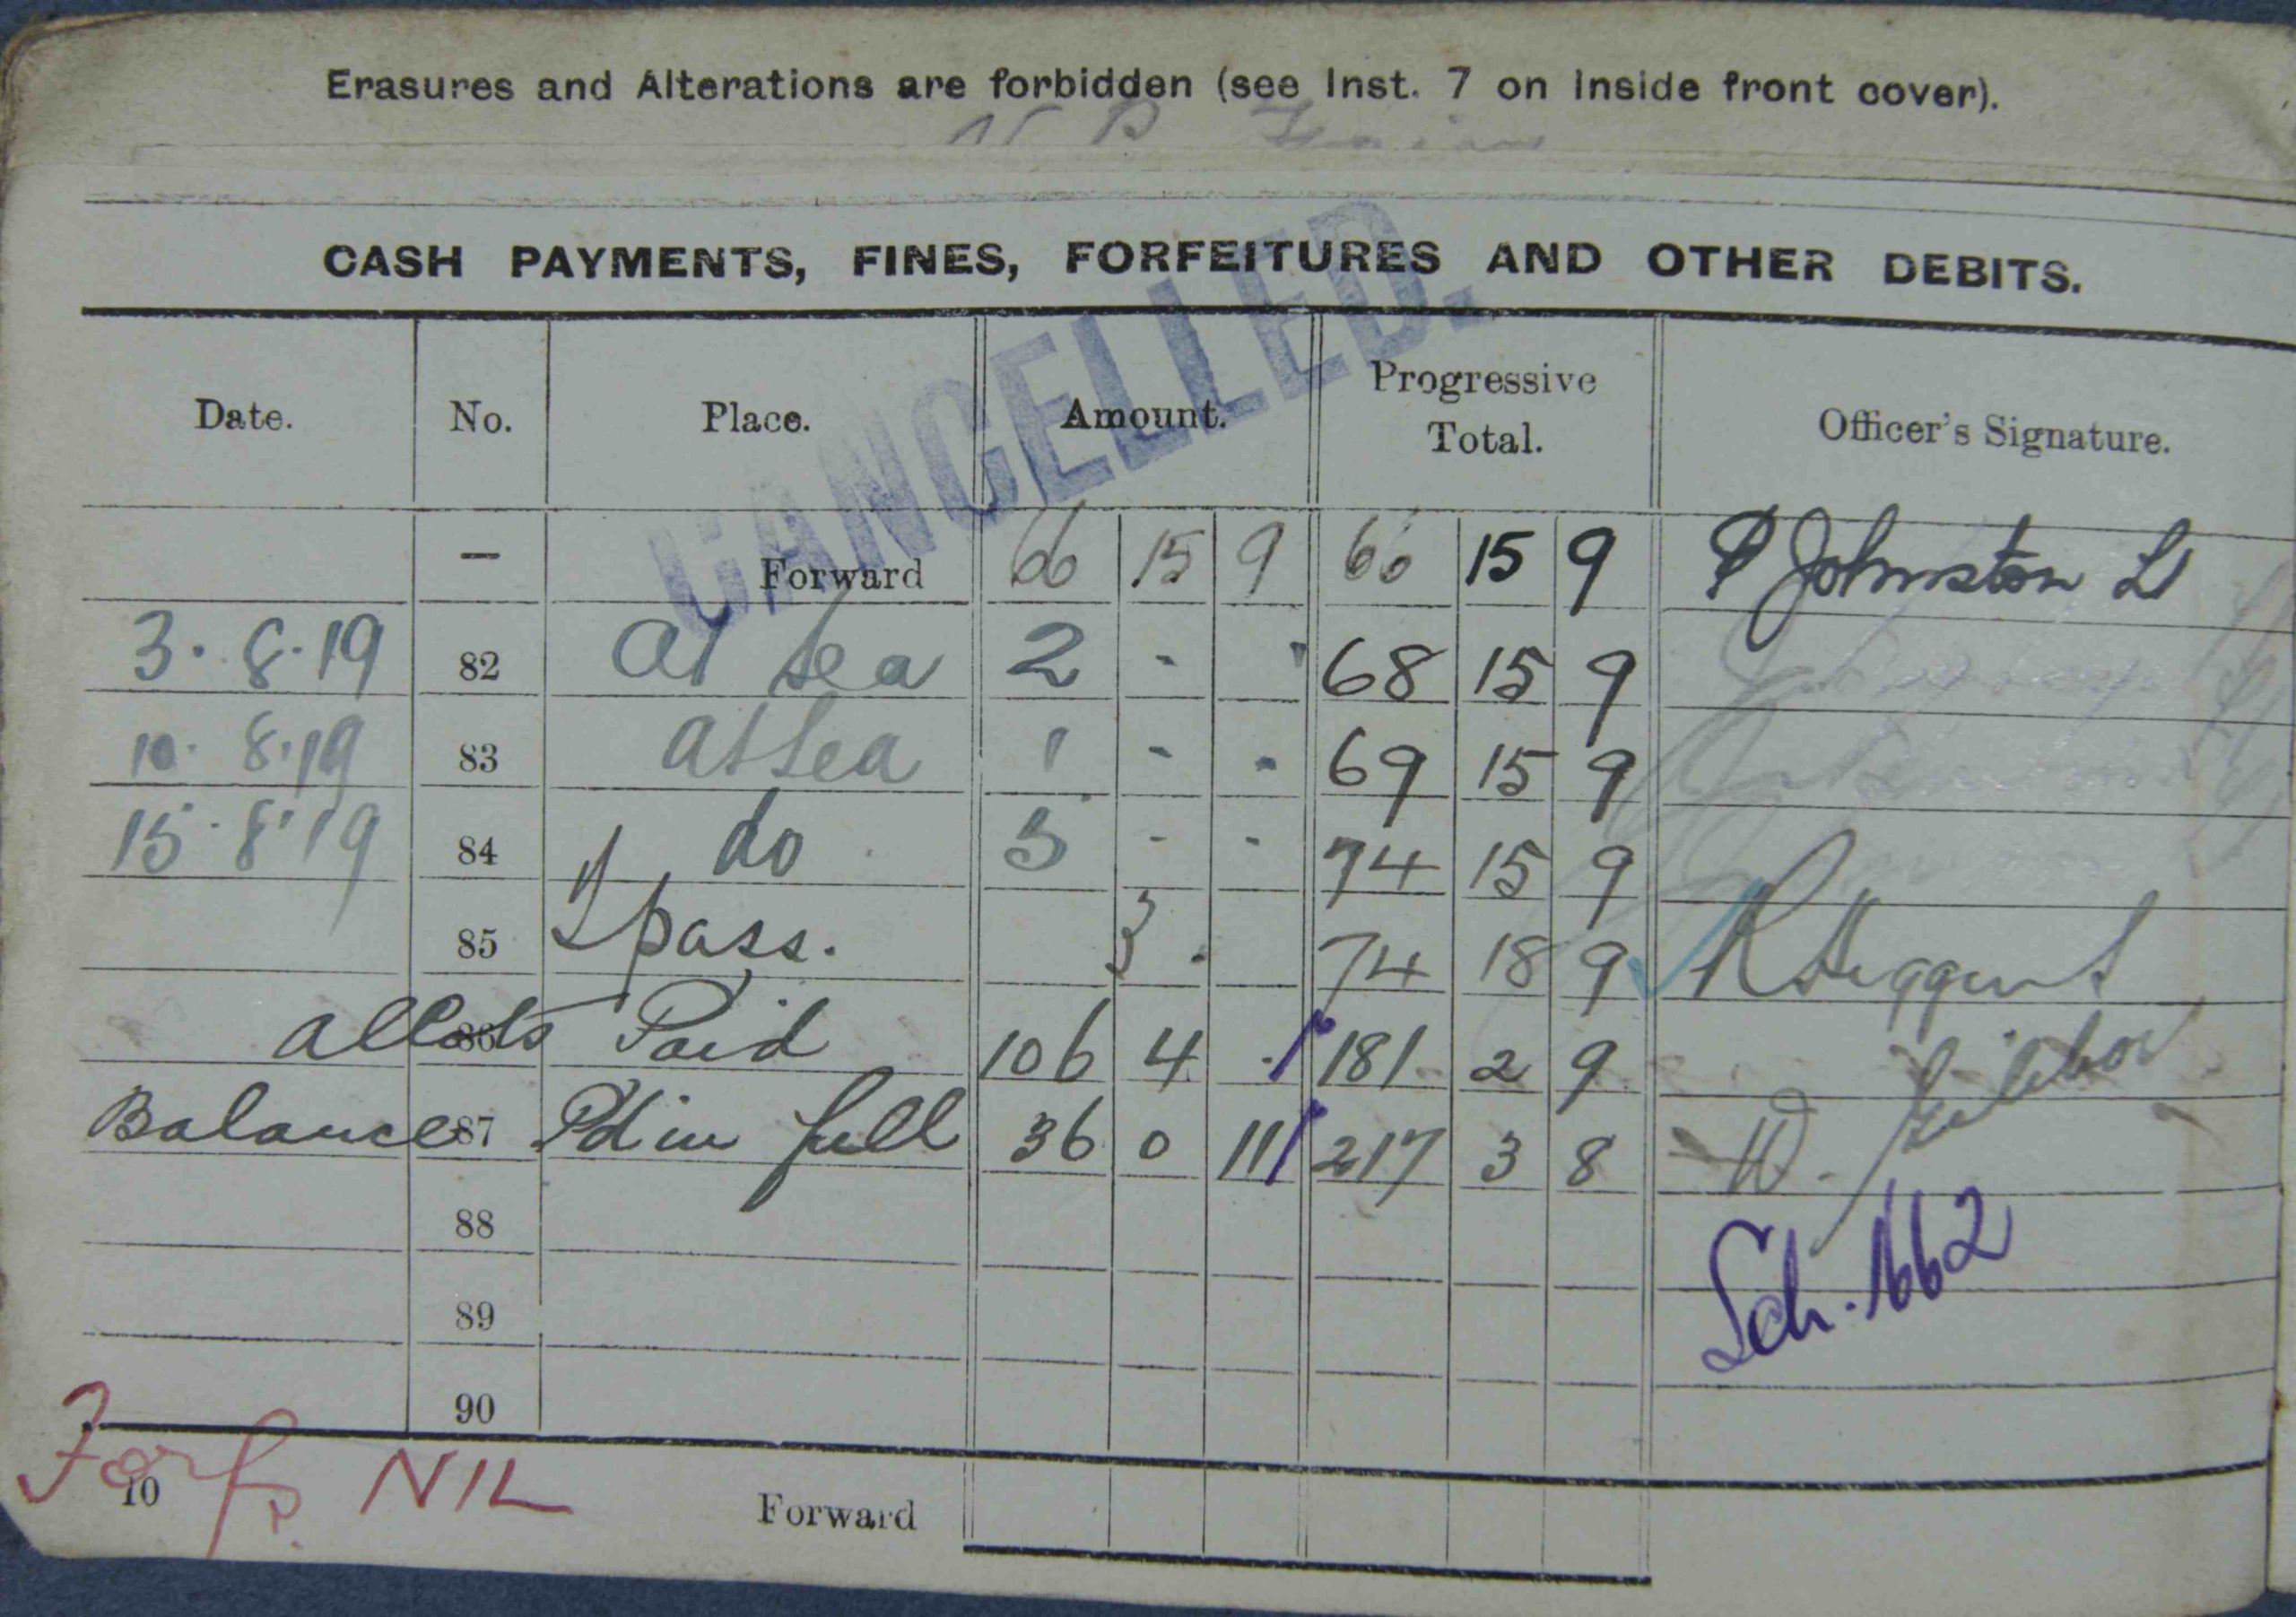 Erasures and Alterations are forbidden (see Inst. 7 on inside front cover).
CASH PAYMENTS, FINES, FORFEITURES AND OTHER DEBITS.
CANCELLED.
Date. No. Place. Amount. Progressive Total. Officer's Signature.
— Forward 66 15 9 66 15 9 P Johnston Lt
3. 8. 19 82 At Sea 2 - - 68 15 9
10. 8. 19 83 At Sea 1 - - 69 15 9
15. 8. 19 84 do 5 - - 74 15 9
85 pass. 3 . 74 18 9
Allots 86 Paid 106 4 - 181 2 9
Balance 87 Pd in full 36 0 11 217 3 8 W.
88
Sch. 1662
89
90
Forfs. NIL
10 Forward